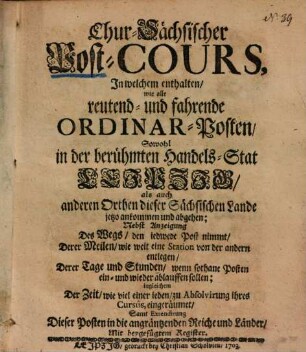 N. 39
Chur-Sächsischer
Post-COURS,
In welchem enthalten/
wie alle
reutend- und fahrende
ORDINAR-Posten/
Sowohl
in der berühmten Handels-Stat
LEIPZIG/
als auch
anderen Orthen dieser Sächsischen Lande
jetzo ankommen und abgehen;
Nebst Anzeigung
Des Wegs/ den iedwede Post nimmt/
Derer Meilen/ wie weit eine Station von der andern
entlegen/
Derer Tage und Stunden/ wenn sothane Posten
ein- und wieder ablauffen sollen;
ingleichen
Der Zeit/ wie viel einer ieden/ zu Absolvirung ihres
Cursus, eingeräumet/
Samt Extendirung
Dieser Posten in die angräntzenden Reiche und Länder/
Mit beygefügtem Register.
LEIPZIG, gedruckt bey Christian 1703.